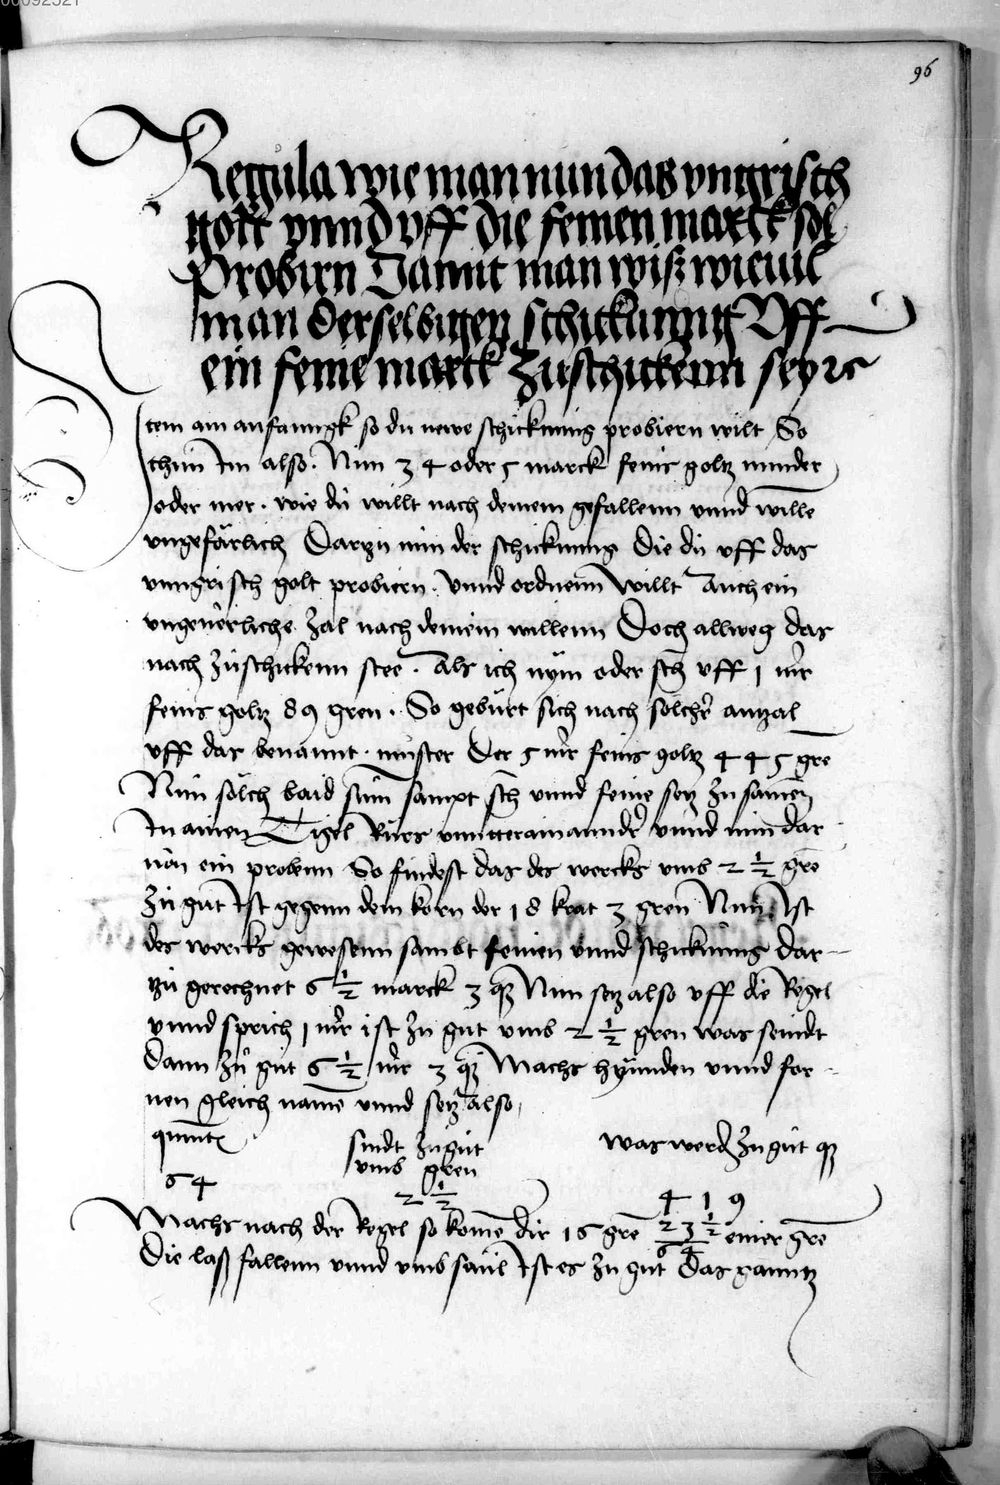 96
Regula wie man nun das vngrisch
golt vnnd vff die feinen marck sol
Probirn Damit man wiß wieuil
man derselbigen schickunng Vff
ein feine marck Zuschickenn sey ꝛc
Item am anfanngk so du newe schicknung probiern wilt So
thun Im also. Nim 3 4 oder 5 marck feins goltz minder
oder mer. wie du willt nach deinem gefallenn vnnd willē
vngefärlich Dartzu nim der schicknung Die du vff das
vnngrisch golt probiern. vnnd ordnenn willt Auch ein
vngeuerliche Zal nach deinem willenn Doch allweg das
nach Zuschickenn stee. Als ich nym oder sch vff 1 mr
feins goltz 89 gren. So gebürt sich nach solchr antzal
vff das benannt. muster Der 5 mr feins goltz 4 4 5 gre
Nun solch baid sum sampt sch vnnd feine setz Zu samen
In ainen Tigel Rürs vnntterainanndr vnnd nim dar
uon ein probenn So findest das des wercks vmb 2 ½ gre
Zu gut Ist gegenn dem korn der 18 krat 3 gren Nun Ist
des wercks gewesenn sambt feinen vnnd schicknung dar-
zu gerechnet 6 ½ marck 3 q̄ Nun setz also vff die Regel
vnnd sprich 1 mr ist Zu gut vmb 2 ½ gren was seindt
dann Zu gut 6 ½ mr 3 q̄ Machs hynnden vnnd for-
nen gleich namē vnnd setz also
quint sindt Zu gut was werdē Zu gut q̄
vmb gren
64 2 ½ 4 1 9
Machs nach der Regel so komē dir 16 gre 23 ½ / 64 einer gre
Die laß fallenn vnnd vmb sauil Ist es Zu gut Das ganntz